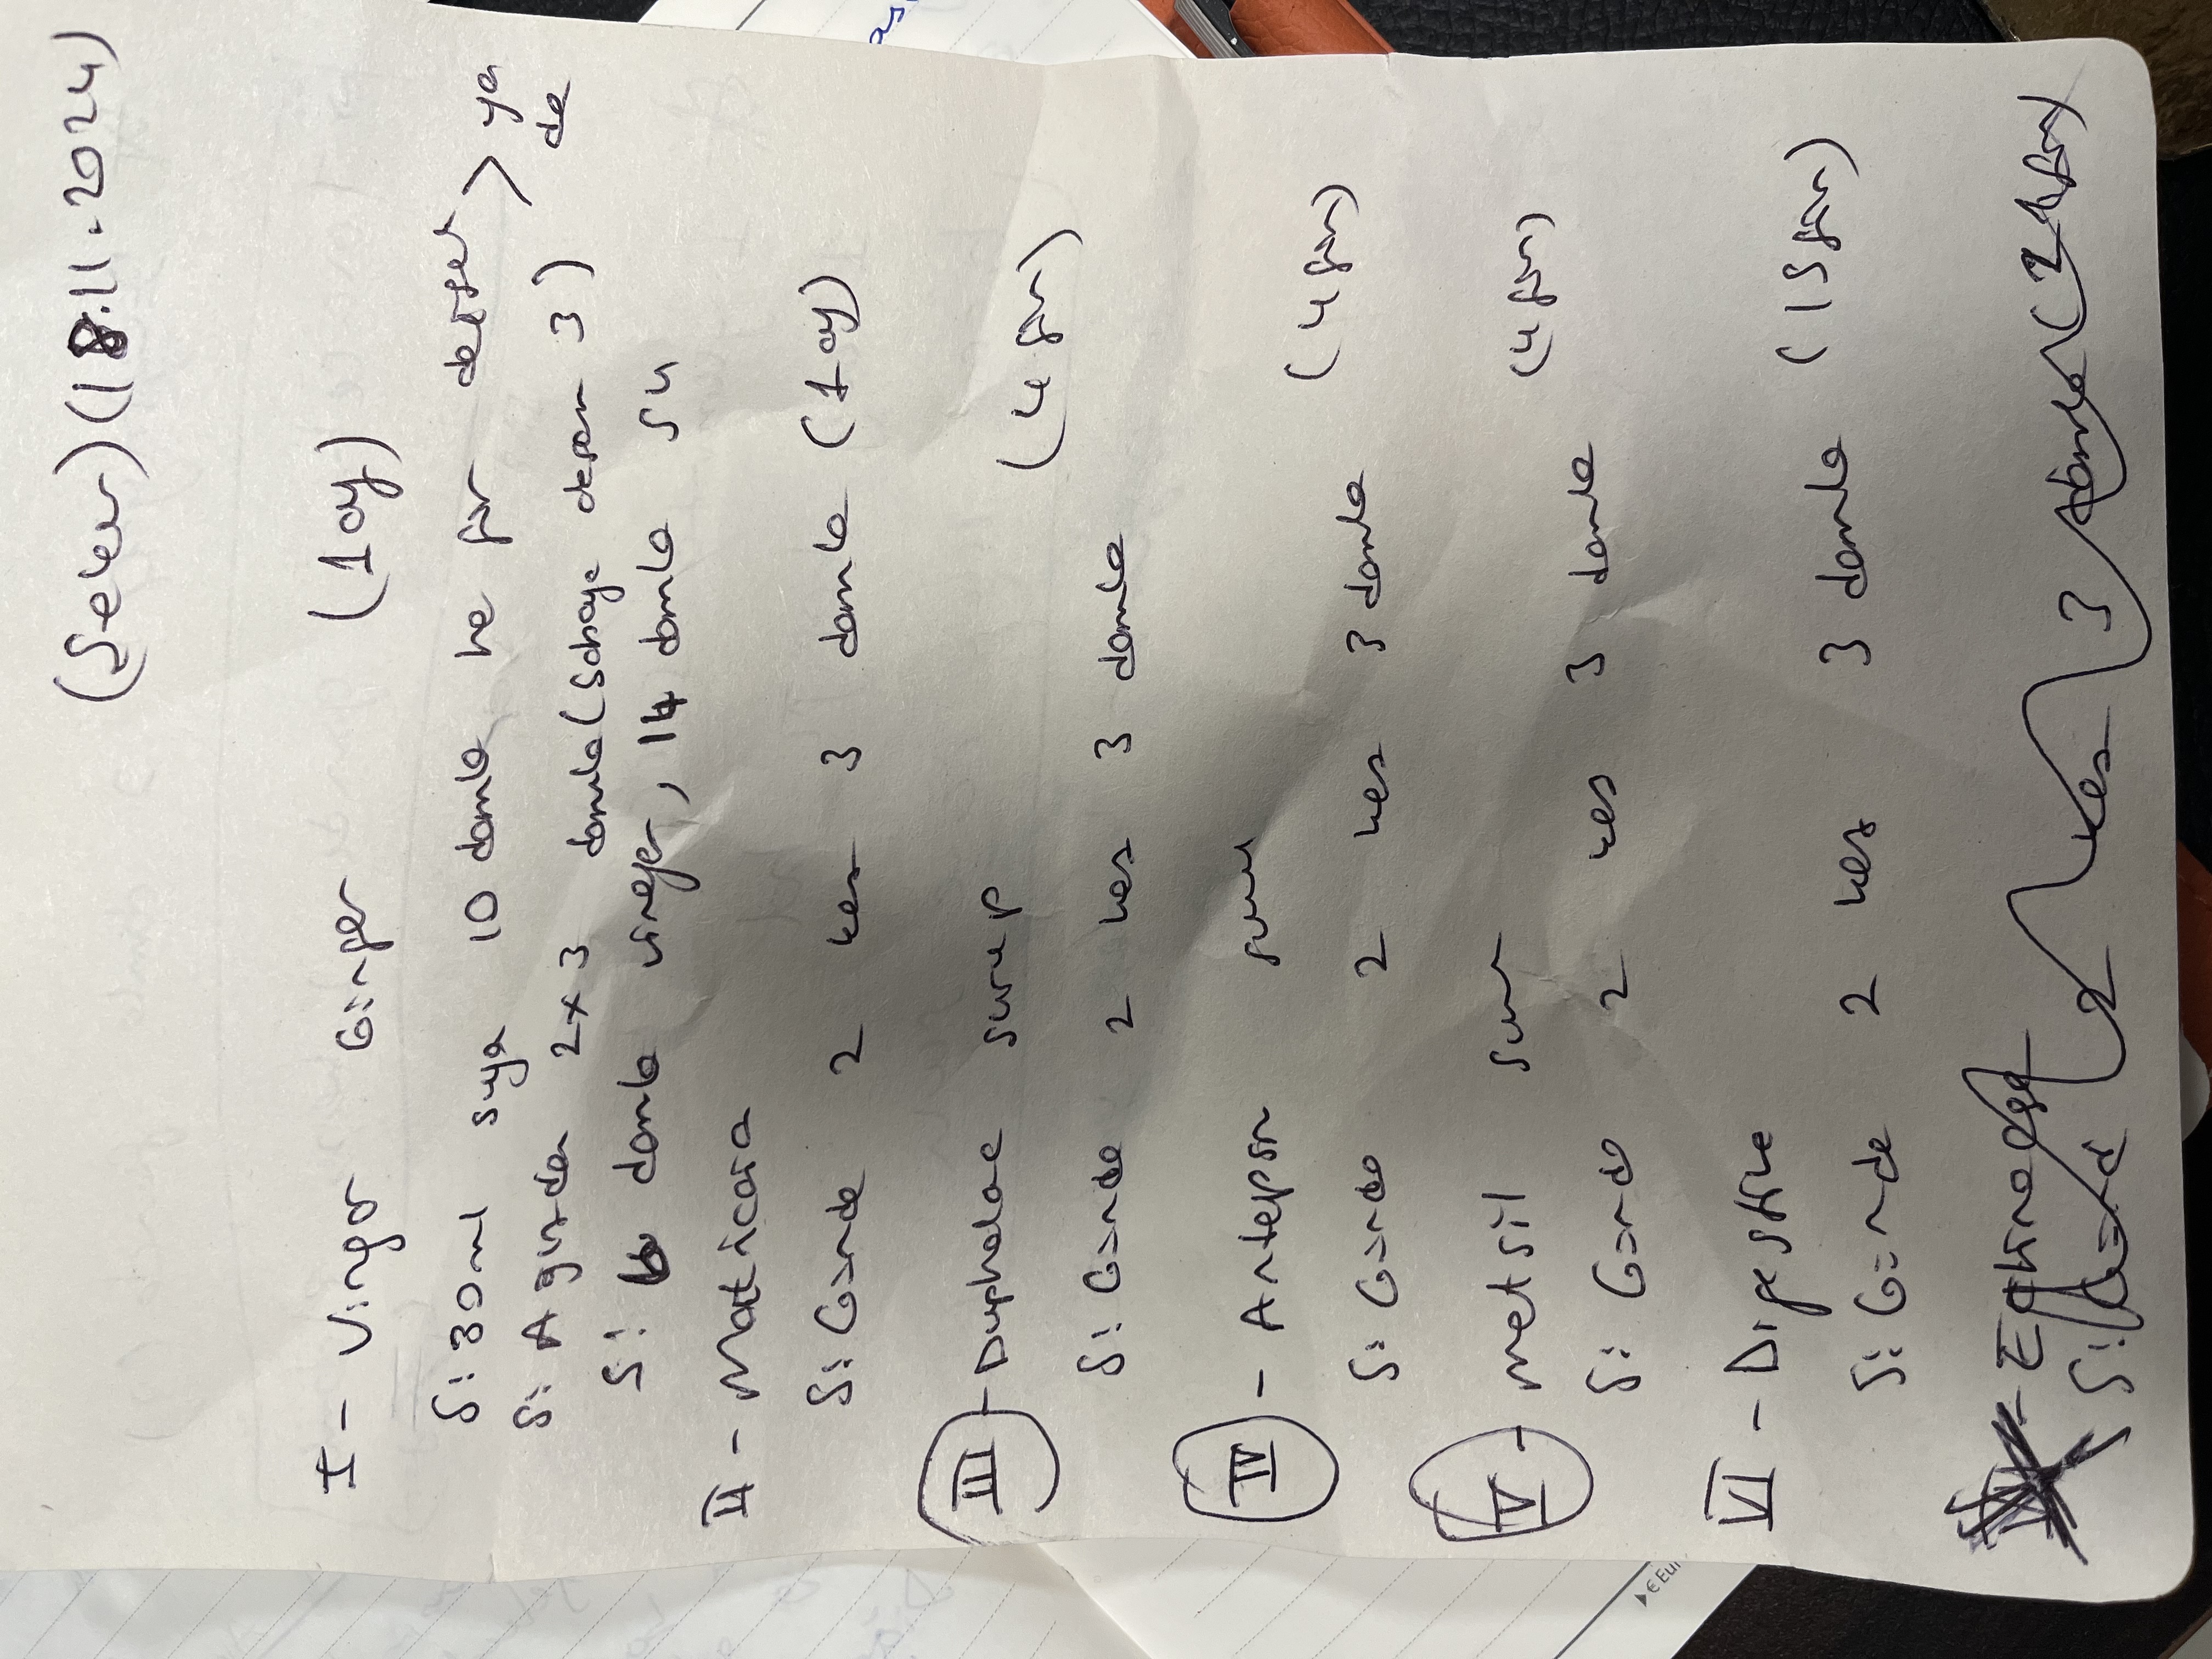 (Şeker) (18.11.2024)
I - Vinger Ginger (1 ay)
S: 30ml suya 10 damla her gün değişer > ya
S: Ağızdan 2x3 damla (Sabah akşam 3) da
S: 6 damla vineger, 14 damla su
II - Matricaria
S: Günde 2 kez 3 damla (1 ay)
III - Duphalac şurup (4 gün)
S: Günde 2 kez 3 damla
IV - Antepsin şurup (4 gün)
S: Günde 2 kez 3 damla
V - Metsil şurup (4 gün)
S: Günde 2 kez 3 damla
VI - Digestive
S: Günde 2 kez 3 damla (15 gün)
- Echinacea
S: Günde 2 kez 3 damla (21 gün)